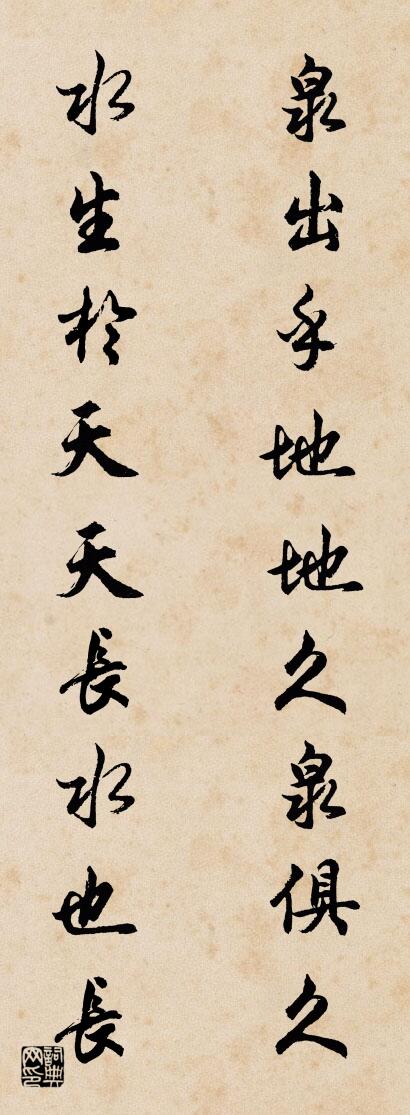 泉出乎地地久泉俱久
水生於天天長水也長
詞典网印